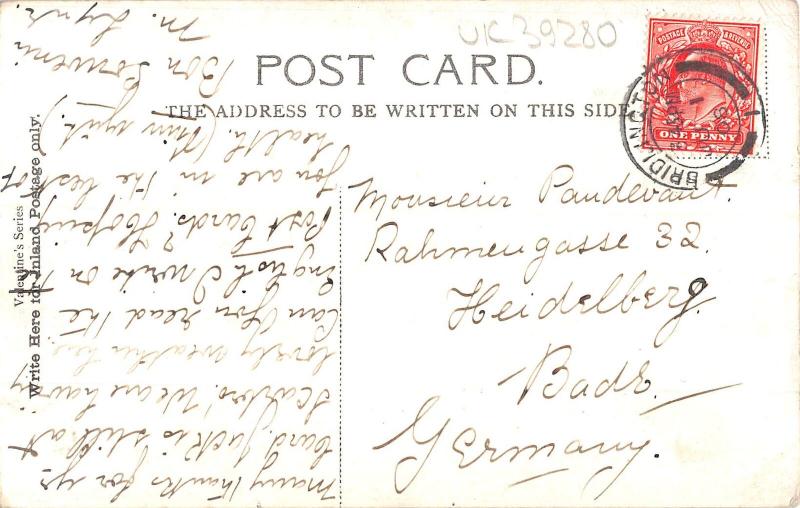 UK39280
POST CARD.
THE ADDRESS TO BE WRITTEN ON THIS SIDE
Valentine's Series
Write Here for Inland Postage only.
POSTAGE & REVENUE
ONE PENNY
BRIDLINGTON
Monsieur Pandevant.
Rahmengasse 32.
Heidelberg.
Bade.
Germany.
Many thanks for yr
card. Jack is still at
Scarbro'. We are having
lovely weather here
Can you read the
English I write on the
Post Cards? Hoping
you are in the best of
health.
Bon Souvenir
M.